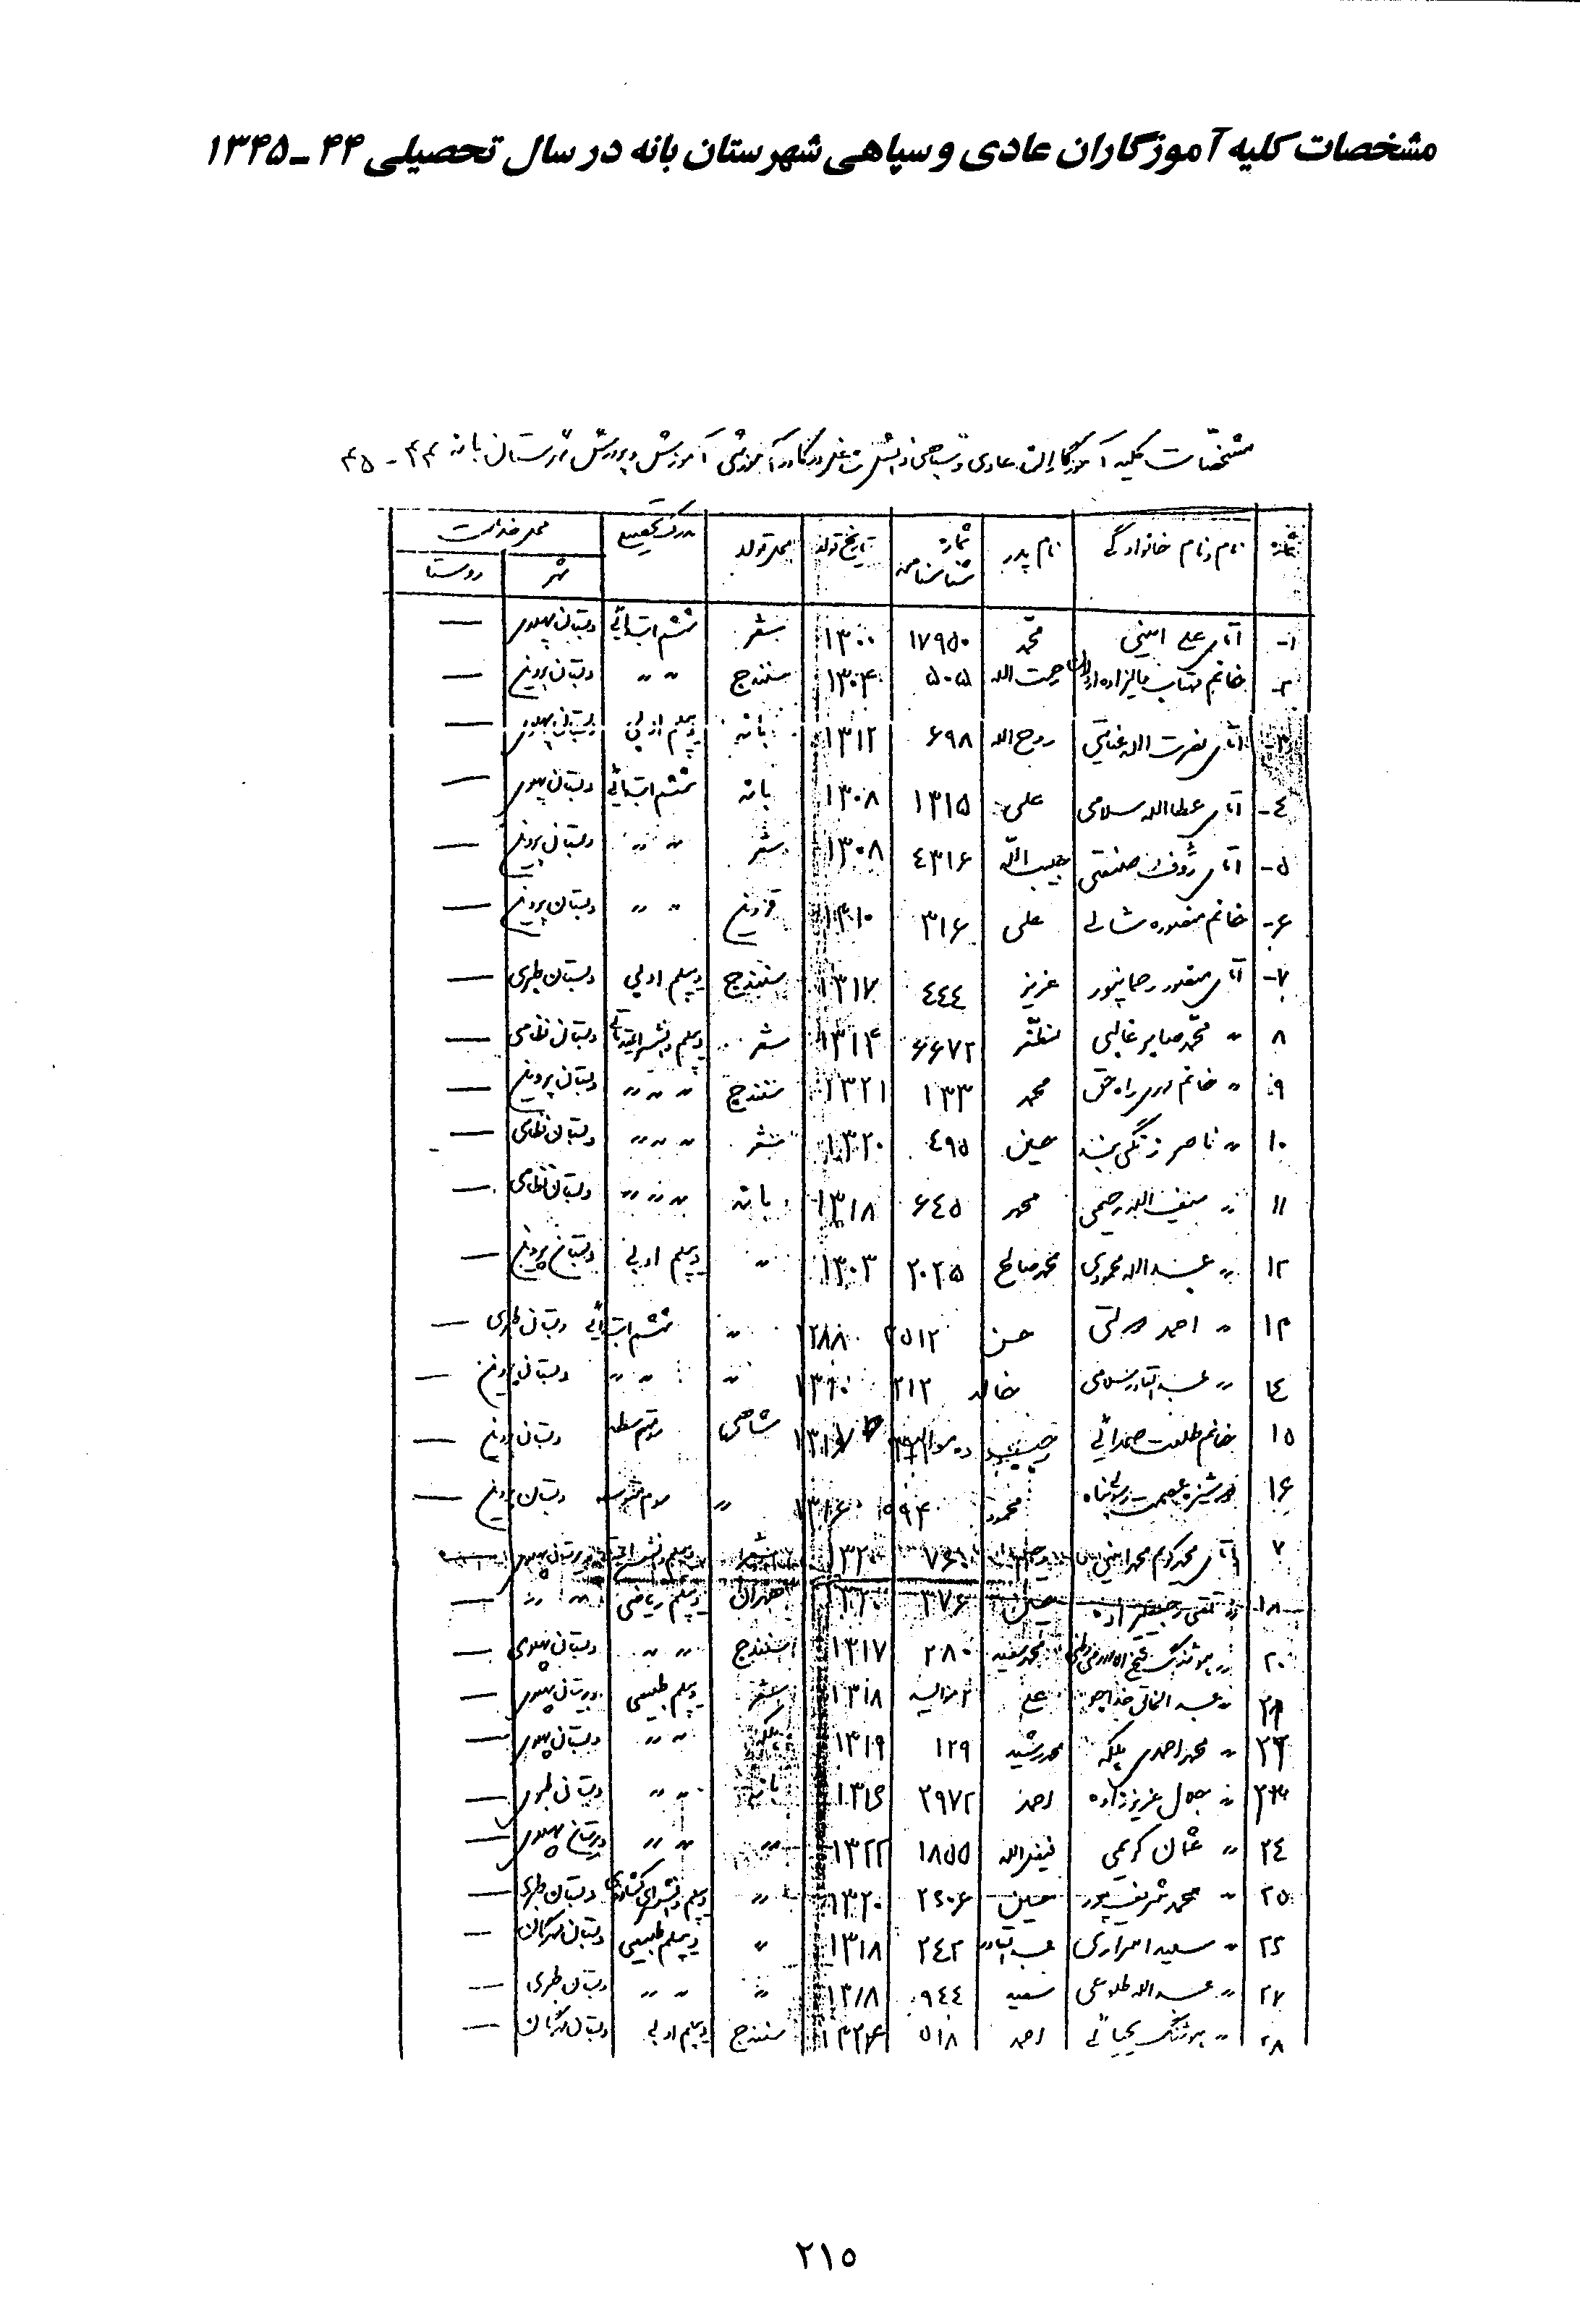 مشخصات کلیه آموزگاران عادی و سپاهی شهرستان بانه در سال تحصیلی ۴۴ـ۱۳۴۵
مشخصات کلیه آموزگاران عادی و سپاهی آموزش و پرورش شهرستان بانه ۴۴ - ۴۵
شماره نام و نام خانوادگی نام پدر شماره شناسنامه تاریخ تولد محل تولد مدرک تحصیلی محل خدمت
شهر روستا
۱- آقای علی امینی محمد ۱۷۹۵۰ ۱۳۰۰ سقز ششم ابتدائی دبستان پهلوی —
۲- خانم مهتاب رحمت الله ۵۰۵ ۱۳۰۴ سنندج " " دبستان پروین —
۳- آقای نصرت الله عنایتی روح الله ۶۹۸ ۱۳۱۲ بانه دیپلم ادبی دبستان پهلوی —
۴- آقای عطاالله سلامی علی ۱۳۱۵ ۱۳۰۸ بانه ششم ابتدائی دبستان پهلوی —
۵- آقای رئوف صنعتی حبیب الله ۴۳۱۶ ۱۳۰۸ سقز " " دبستان پروین —
۶- خانم منصوره شالی علی ۳۱۶ ۱۳۱۰ قزوین " " دبستان پروین —
۷- آقای منصور رحمانپور عزیز ۴۴۴ ۱۳۱۷ سنندج دیپلم ادبی دبستان طبری —
۸ " محمد صابر غالبی مظفر ۶۶۷۲ ۱۳۱۴ سقز دیپلم دانشسرای مقدماتی دبستان نظامی —
۹ " خانم راه حق محمد ۱۳۳ ۱۳۲۱ سنندج " " " دبستان پروین —
۱۰ " ناصر زنگی بند حسین ۴۹۵ ۱۳۲۰ سقز " " " دبستان نظامی —
۱۱ " سیف الله رحیمی محمد ۶۴۵ ۱۳۱۸ بانه " " " دبستان نظامی —
۱۲ " عبدالله محمودی محمد صالح ۲۰۲۵ ۱۳۰۳ " دیپلم ادبی دبستان پروین —
۱۳ " احمد دولتی حسن ۲۵۱۲ ۱۲۸۸ " ششم ابتدائی دبستان طبری —
۱۴ " عبدالقادر سلامی خالد ۲۱۲ ۱۳۱۰ " " " دبستان پروین —
۱۵ خانم طلعت صمدائی ۱۳۱۷ شاهی دبستان پروین —
۱۶ دوشیزه عصمت محمود ۵۹۴ ۱۳۱۶ " سوم متوسطه دبستان پروین —
۷ آقای محمد کریم محمد امینی ۷۶۱ ۱۳۲۰ سقز دبیرستان پهلوی —
۱۸ " تقی حسین ۳۷۶ ۱۳۲۰ تهران دیپلم ریاضی " " —
۲۰ " هوشنگ محمد سعید ۲۸۰ ۱۳۱۷ سنندج " " دبستان پهلوی —
۲۱ " عبدالخالق خداجو علی ۱۳۱۸ سقز دیپلم طبیعی دبیرستان پهلوی —
۲۲ " محمد احمدی بلکه محمد رشید ۱۲۹ ۱۳۱۹ بلکه " " دبستان پهلوی —
۲۳ " جلال عزیززاده احمد ۲۹۷۲ ۱۳۱۶ بانه " " دبستان طبری —
۲۴ " عثمان کریمی فیض الله ۱۸۵۵ ۱۳۲۲ " " " دبیرستان پهلوی —
۲۵ " محمد شریف پور حسین ۲۶۰۶ ۱۳۲۰ " دیپلم دانشسرای کشاورزی دبستان طبری —
۲۶ " سعید احراری عبدالقادر ۲۴۲ ۱۳۱۸ " دیپلم طبیعی دبستان مهرگان —
۲۷ " عبدالله طلوعی سعید ۹۴۴ ۱۳۱۸ " " " دبستان طبری —
۲۸ " هوشنگ یحیائی احمد ۵۱۸ سنندج دیپلم ادبی دبستان مهرگان —
۲۱۵